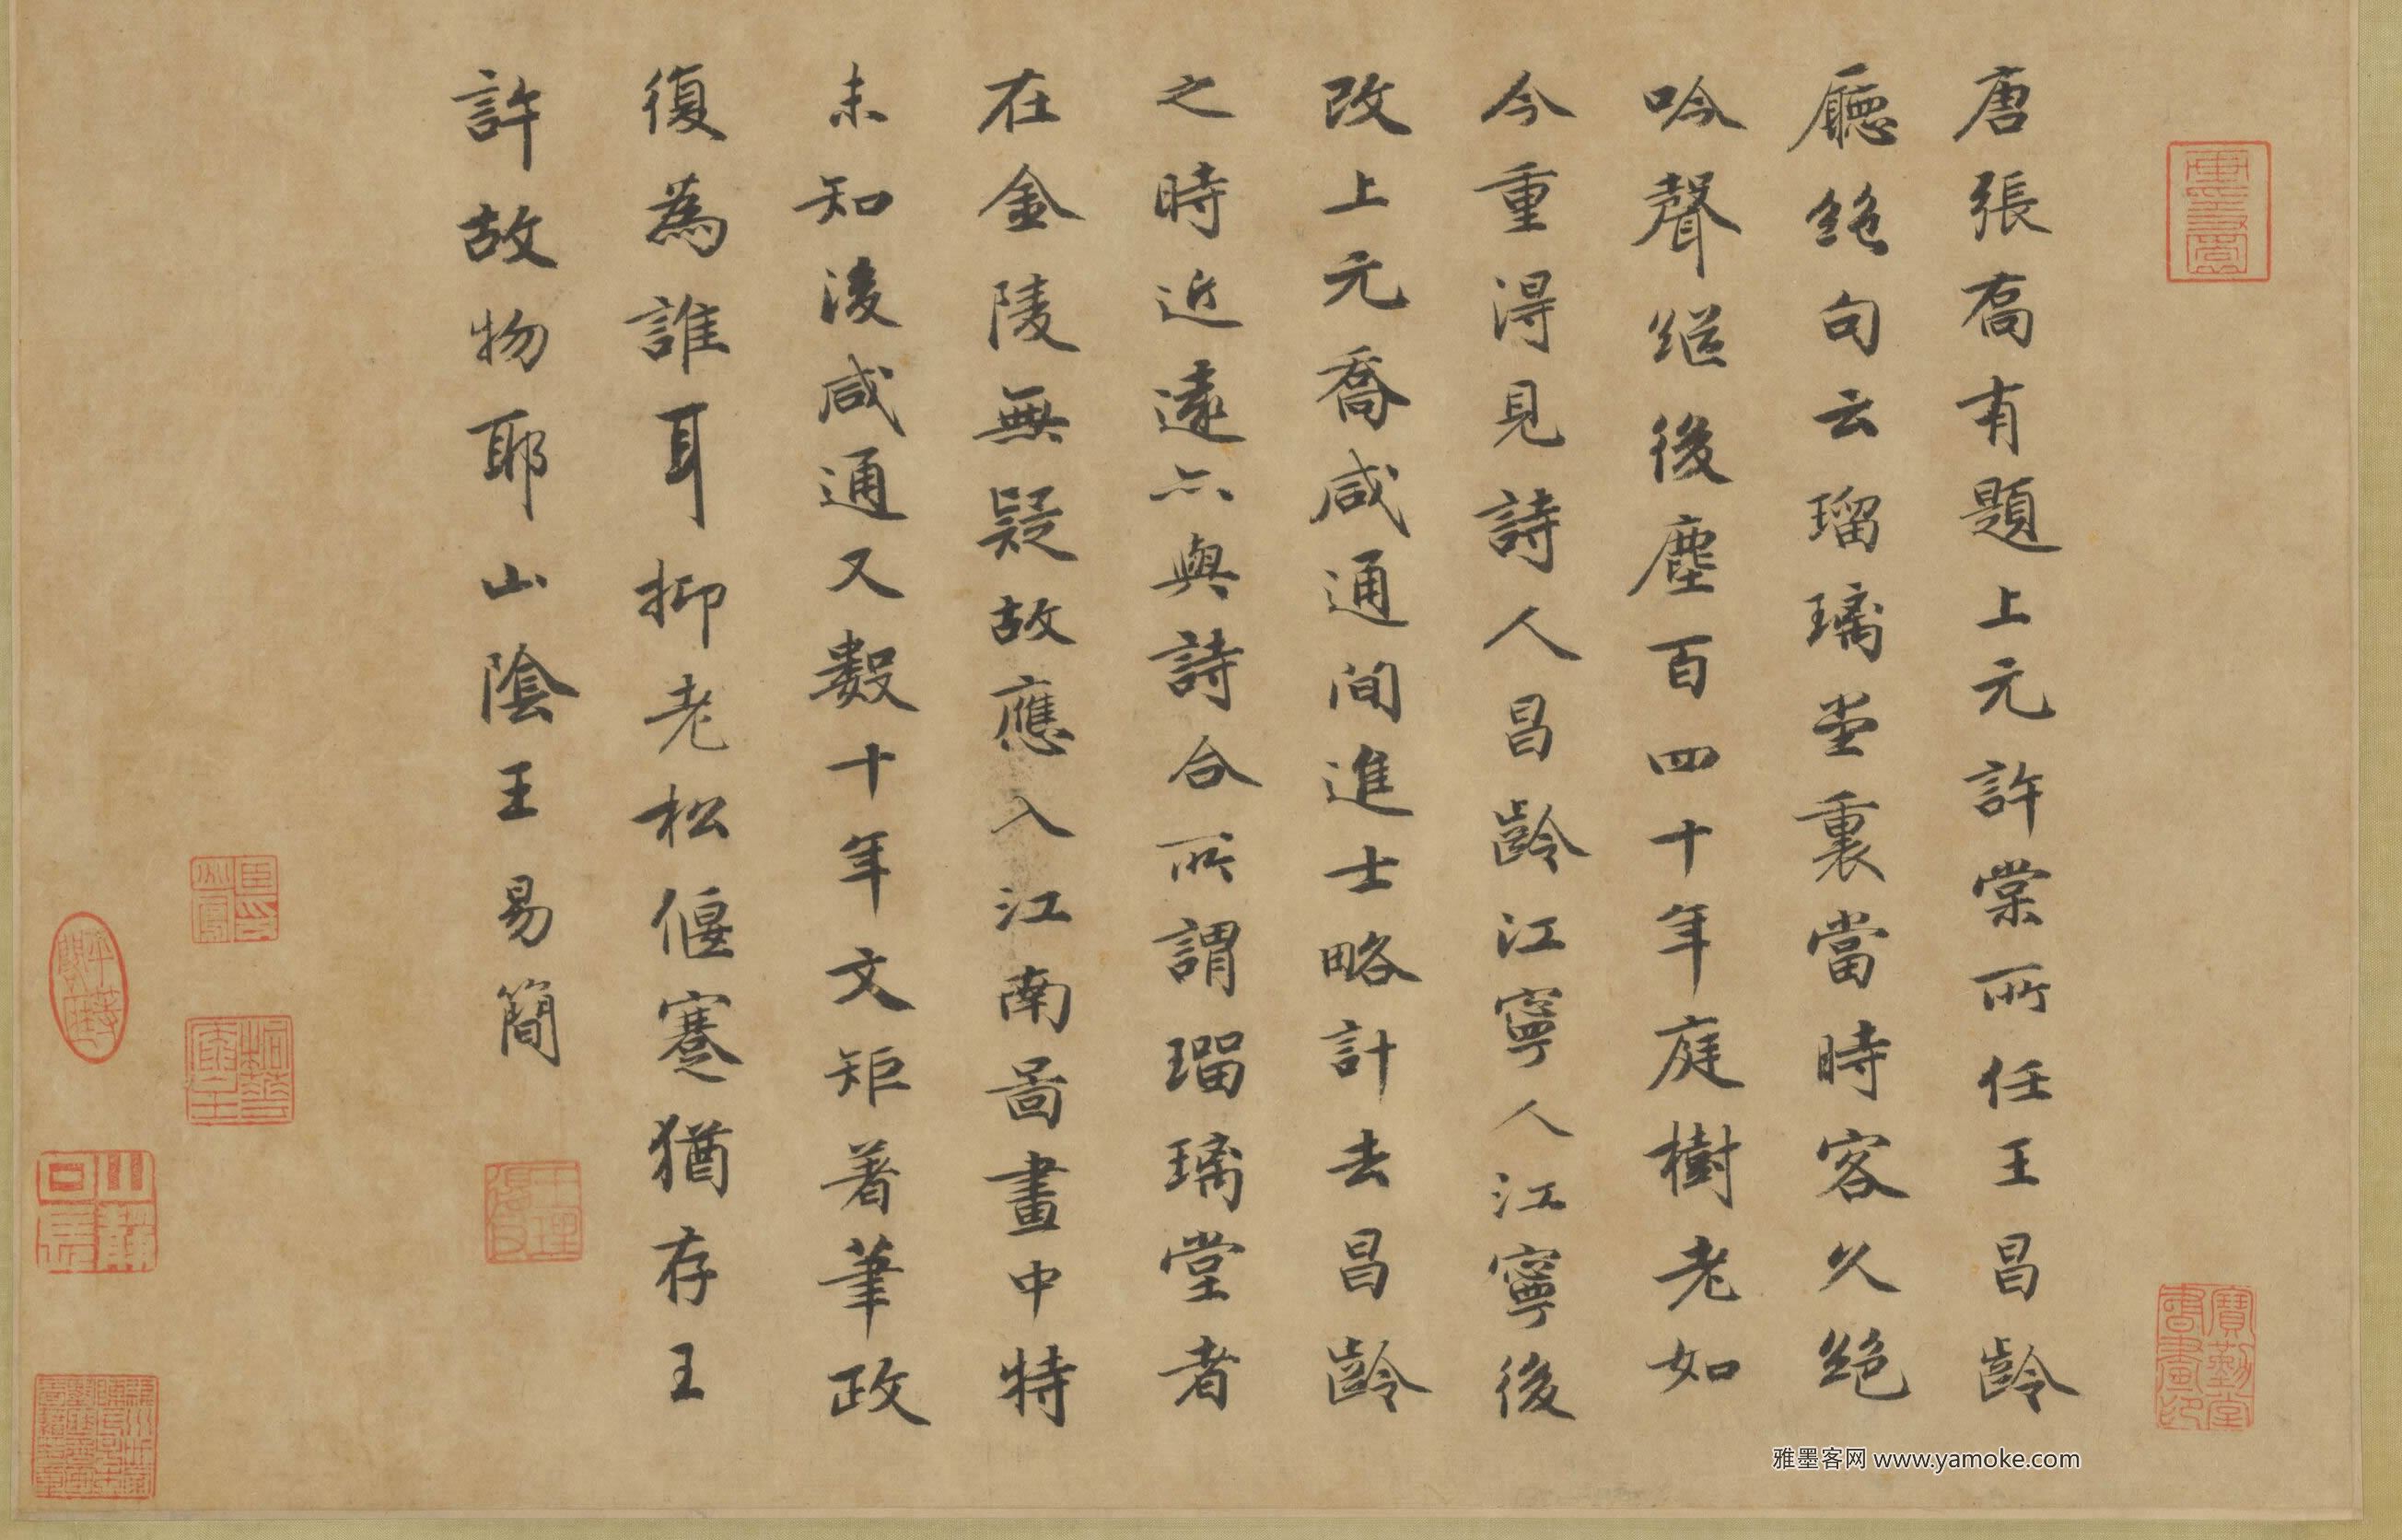 唐張喬有題上元許棠所任王昌齡
廳絕句云瑠璃堂裏當時客久絕
吟聲繼後塵百四十年庭樹老如
今重得見詩人昌齡江寧人江寧後
改上元喬咸通間進士略計去昌齡
之時近遠亦與詩合所謂瑠璃堂者
在金陵無疑故應入江南圖畫中特
未知後咸通又數十年文矩著筆政
復為誰耳抑老松偃蹇猶存王
許故物耶山陰王易簡
寶勤堂
書畫印
雅墨客网 www.yamoke.com